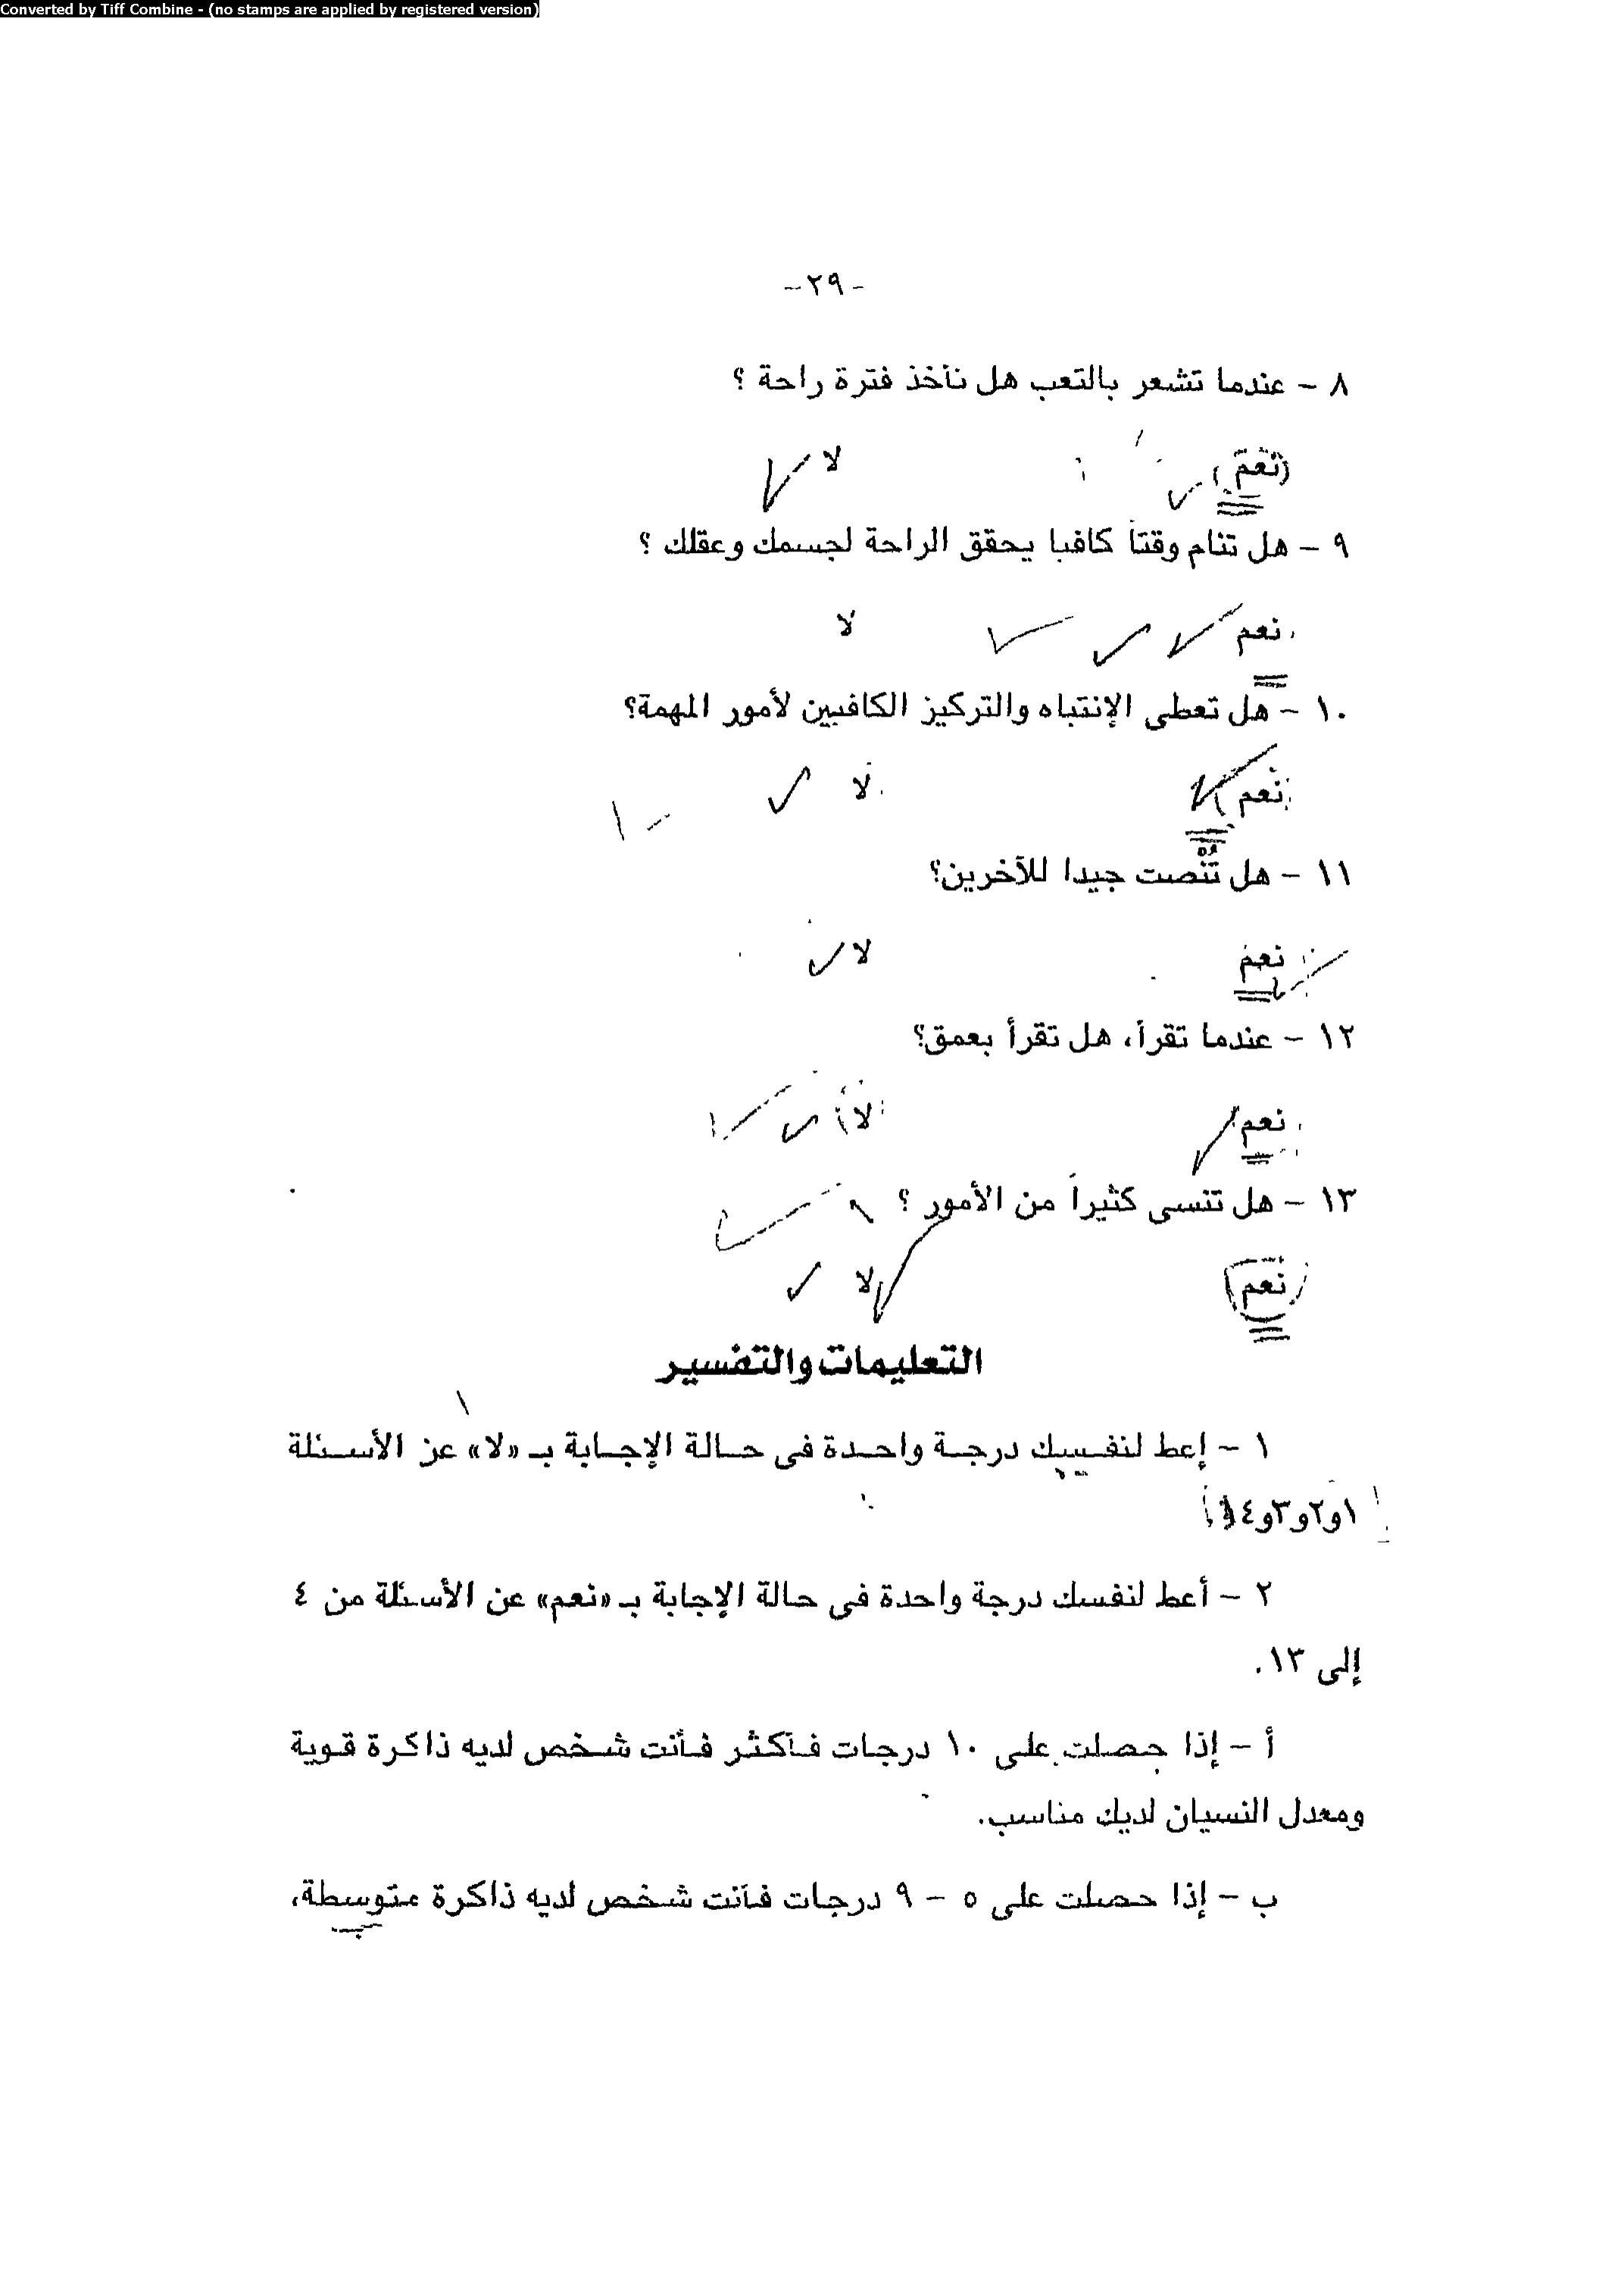 Converted by Tiff Combine - (no stamps are applied by registered version)
-٢٩-
٨ - عندما تشعر بالتعب هل تأخذ فترة راحة ؟
(نعم) لا
٩ - هل تنام وقتاً كافيا يحقق الراحة لجسمك وعقلك ؟
نعم لا
١٠ - هل تعطى الإنتباه والتركيز الكافيين لأمور المهمة؟
نعم لا
١١ - هل تُنْصت جيدا للآخرين؟
نعم لا
١٢ - عندما تقرأ، هل تقرأ بعمق؟
نعم لا
١٣ - هل تنسى كثيراً من الأمور ؟
نعم لا
التعليمات والتفسير
١ - إعط لنفسك درجة واحدة فى حالة الإجابة بـ «لا» عن الأسئلة
١و٢و٣و٤
٢ - أعط لنفسك درجة واحدة فى حالة الإجابة بـ «نعم» عن الأسئلة من ٤
إلى ١٣.
أ - إذا حصلت على ١٠ درجات فأكثر فأنت شخص لديه ذاكرة قوية
ومعدل النسيان لديك مناسب.
ب - إذا حصلت على ٥ - ٩ درجات فأنت شخص لديه ذاكرة متوسطة،